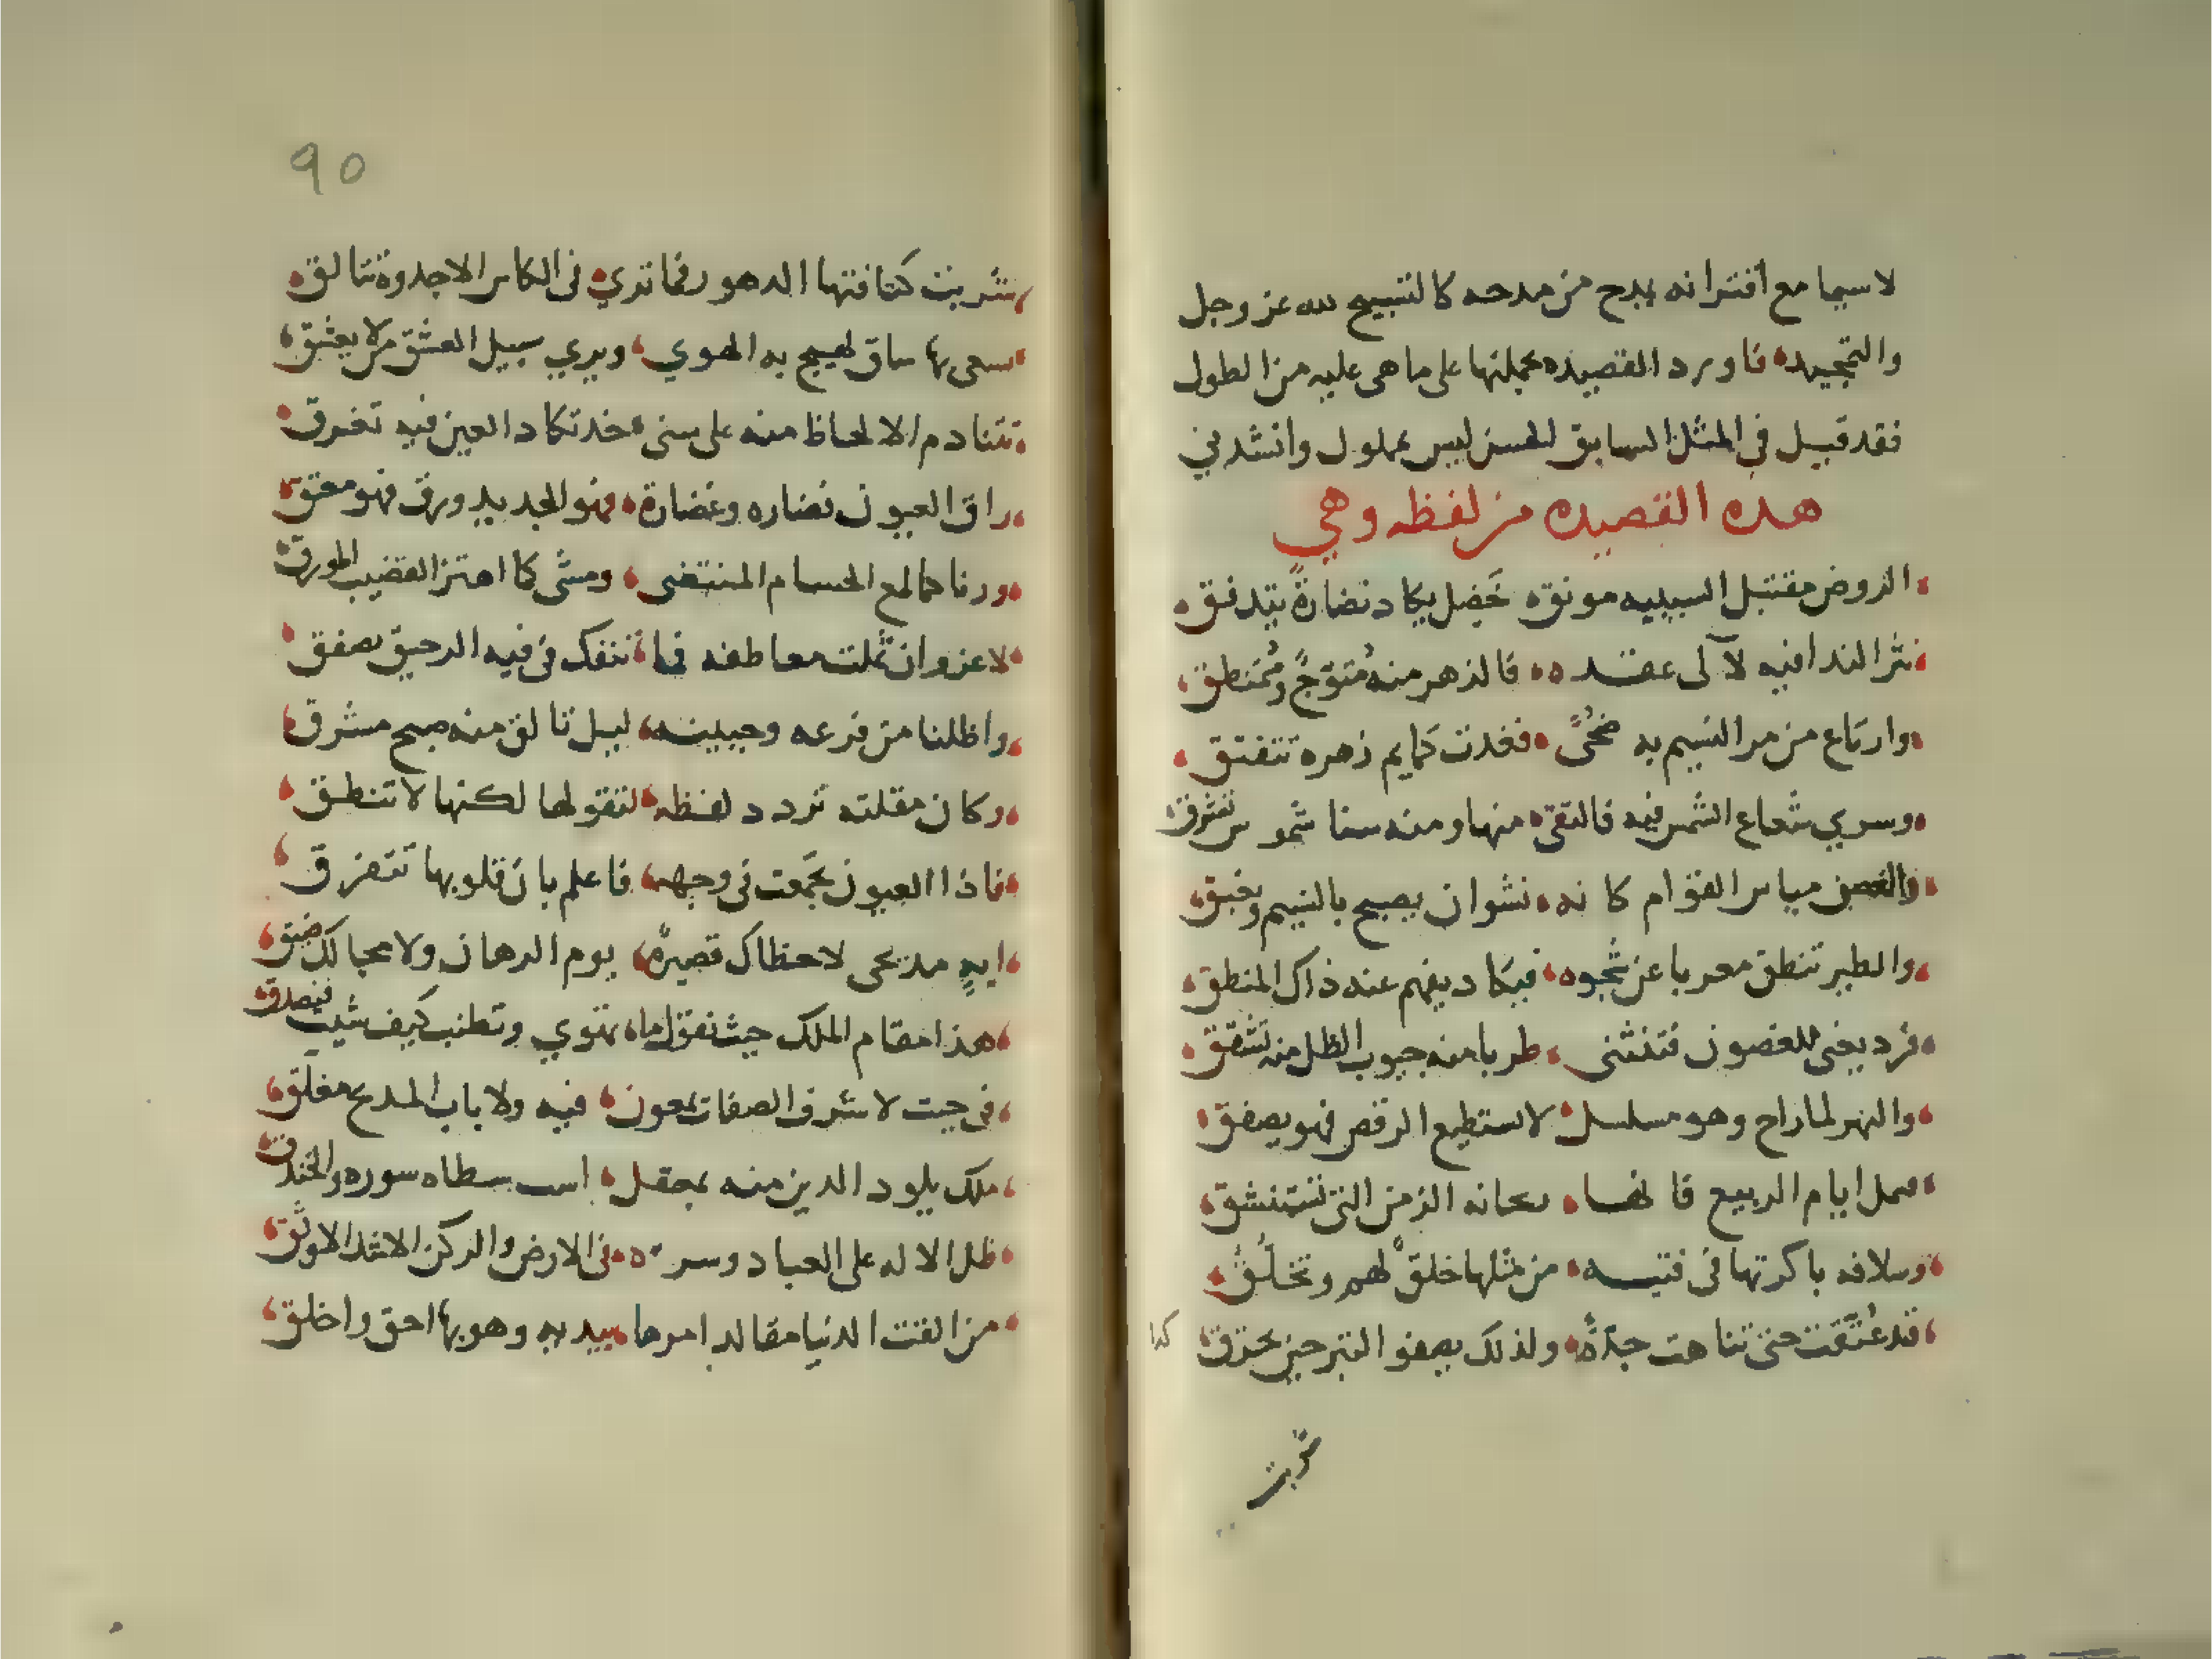 لاسيما مع اقترانه بمدح من مدحه كالتسبيح لله عز وجل
والتمجيد فاورد القصيده بجملتها على ما هى عليه من الطول
فقد قيل في المثل السابق الحسن ليس بمملول وانشدني
هذه القصيده من لفظه وهي
الروض مقتبل الشبيبه مونق خَضِل يكاد نضارةً يتدفق
نثر الندا فيه لآلى عقده فالزهر منه مُتوّج ومُمنطق
وارتاع من مر النسيم به ضحىً فغدت كمايم زهره تتفتق
وسري شعاع الشمس فيه فالتقى منها ومنه سنا شموس تشرق
والغصن مياس القوام كانه نشوان يصبح بالنسيم ويغبق
والطير تنطق معربا عن شجوه فيكاد يفهم عنه ذاك المنطق
غرد يغنى للغصون فتنثنى طربا منه جيوب الظل منه تشقق
والنهر لما راح وهو مسلسل لا يستطيع الرقص فهو يصفق
ايام الربيع فانها ريحانه الزمن التى تستنشق
وسلافه باكرتها فى فتيه من مثلها خلقٌ لهم وتخلّقُ
قد عُتّقت حتى تناهت جدّةً ولذلك يصفو التبر حين يحرق
كذا
شربت
شربت كثافتها الدهور فما تري فى الكاس الا جذوة تتالق
يسعى بها ساق يهيج به الهوي ويري سبيل العشق من لا يعشق
تتنادم الالحاظ منه على سنى خد تكاد العين فيه تغرق
راق العيون نضاره وغضارة فهو الجديد ورق فهو معتق
ورنا كما لمع الحسام المنتضى ومشى كما اهتز القضيب المورق
لا غرو ان ثملت معاطفه فما تنفك فى فيه الرحيق يصفق
واظلنا من فرعه وجبينه ليل تالق منه صبح مشرق
وكان مقلته تردد لفظه لتقولها لكنها لا تنطق
فاذا العيون تجمّعت فى وجهه فاعلم بان قلوبها تتفرق
ايهٍ مدحى لا خطاك قصيرةً يوم الرهان ولا مجالك ضيق
هذا مقام الملك حيث تقول ما تهوي وتطنب كيف شيت فتصدق
فى حيث لا شرف الصفات بمعوز فيه ولا باب المدح مغلق
ملك يلود الدين منه بمعقل سطاه سوره والخندق
ظل الاله على العباد وسره فى الارض والركن الاشد الاوثق
من القت الدنيا مقالد امرها بيديه وهو بها احق واخلق
٩٥